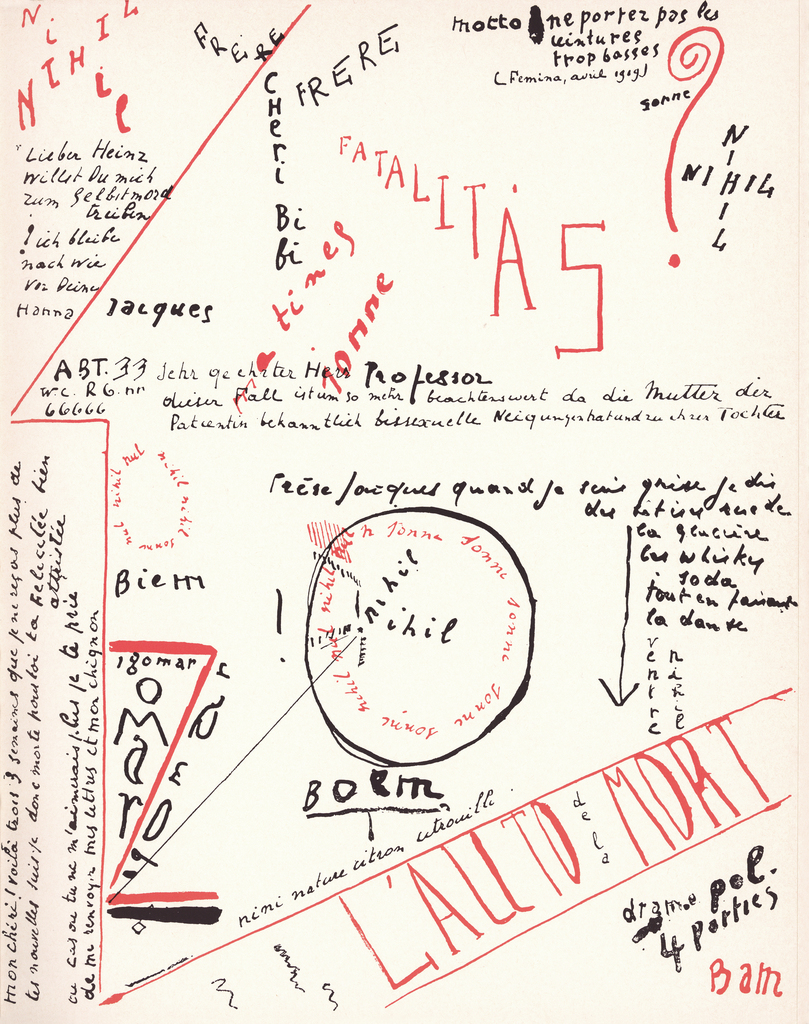 NiHIL
Ni
NIHil
FRÈRE
FRERE
CHeri Bi
bi
motto ne portez pas les
ceintures
trop basses
(Femina, avril 1919)
sonne
NIHIL
NIHIL
FATALITAS
"Lieber Heinz
willst Du mich
zum Selbstmord
treiben
! ich bleibe
nach wie
vor Deine
Hanna
Jacques
matines
sonne
ABT. 33 Sehr geehrter Herr Professor
W.C. R6. nn
66666
dieser Fall ist um so mehr beachtenswert da die Mutter der
Patientin bekanntlich bissexuelle Neigungen hat und zu ihrer Tochter
mon chéri! voilà trois 3 semaines que je ne reçois plus de
tes nouvelles suis-je donc morte pour toi ta Felicitée bien
attristée
au cas où tu ne m'aimerais plus je te prie
de me renvoyer mes lettres et mon chignon
nihil nul nihil
nihil nul sonne
Biem
Frése Jacques quand je suis grise je dis
des bêtises rue de
la glacière
les whisky
soda
tout en faisant
la danse
ventre
nihil
n sonne sonne sonne sonne sonne sonne sonne nihil nul nihil nul
nihil
ihil
!
BOEM
igomar
OMaro
nini nature citron citrouille.
L'AUTO
de la
MORT
drame pol.
4 parties
Bam